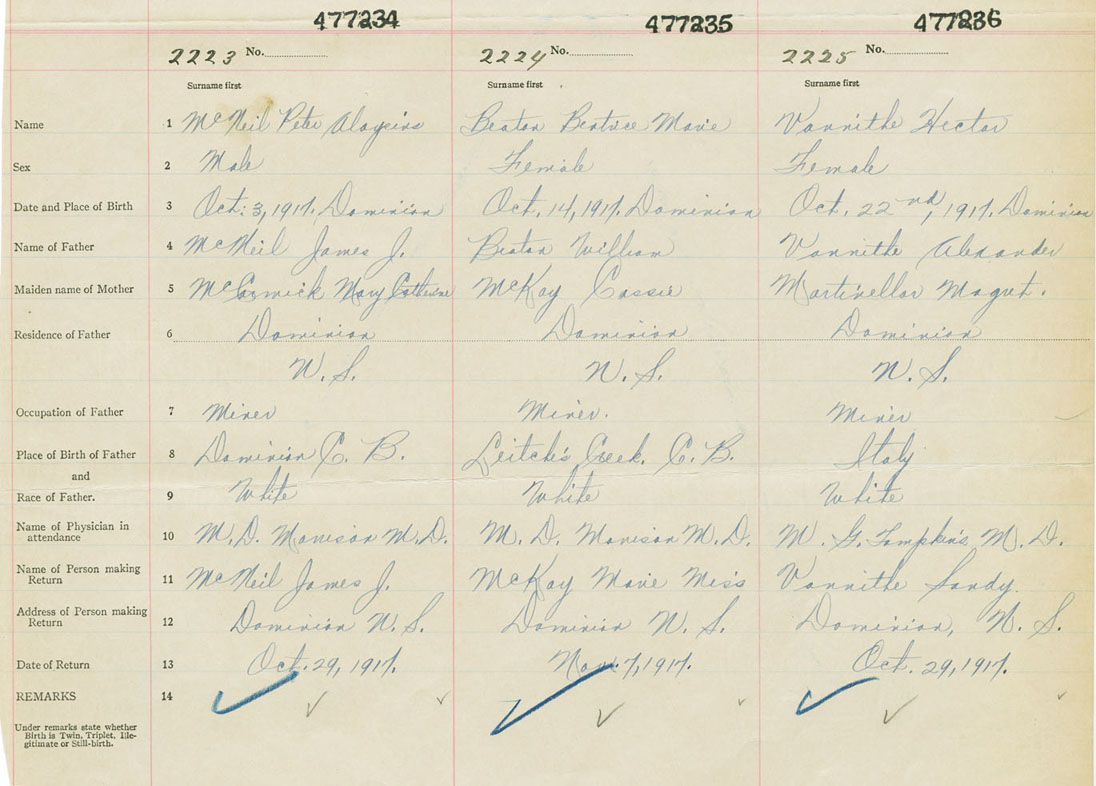 477234 477235 477236
2223 No. 2224 No. 2225 No.
Surname first Surname first Surname first
Name 1 McNeil Peter Aloysius Beaton Beatrice Marie Vannithe Hector
Sex 2 Male Female Female
Date and Place of Birth 3 Oct. 3, 1917, Dominion Oct. 14, 1917, Dominion Oct. 22nd, 1917, Dominion
Name of Father 4 McNeil James J. Beaton William Vannithe Alexander
Maiden name of Mother 5 McCormick Mary Catherine McKay Cassie Martinellar Magret.
Residence of Father 6 Dominion Dominion Dominion
N. S. N. S. N. S.
Occupation of Father 7 Miner Miner. Miner
Place of Birth of Father 8 Dominion C. B. Leitche's Creek, C. B. Italy
and
Race of Father. 9 White White White
Name of Physician in
attendance 10 M. D. Morrison M.D. M. D. Morrison M. D. M. G. Tompkins M. D.
Name of Person making
Return 11 McNeil James J. McKay Marie Miss Vannithe Sandy.
Address of Person making
Return 12 Dominion N. S. Dominion N. S. Dominion, N. S.
Date of Return 13 Oct. 29, 1917. Nov. 7, 1917. Oct. 29, 1917.
REMARKS 14
Under remarks state whether
Birth is Twin, Triplet, Ille-
gitimate or Still-birth.